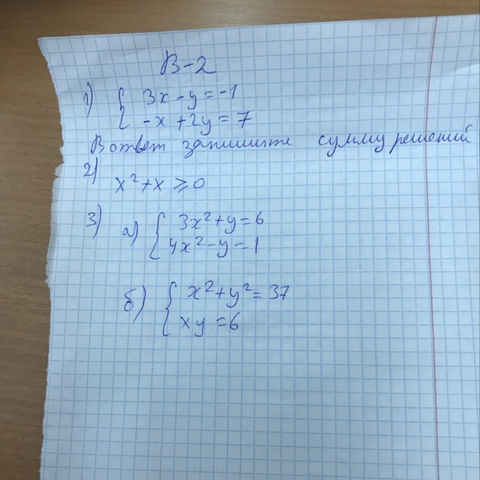 В-2
1) { 3x - y = -1
-x + 2y = 7
В ответ запишите сумму решений
2) x² + x ≥ 0
3) а) { 3x² + y = 6
4x² - y = 1
б) { x² + y² = 37
xy = 6